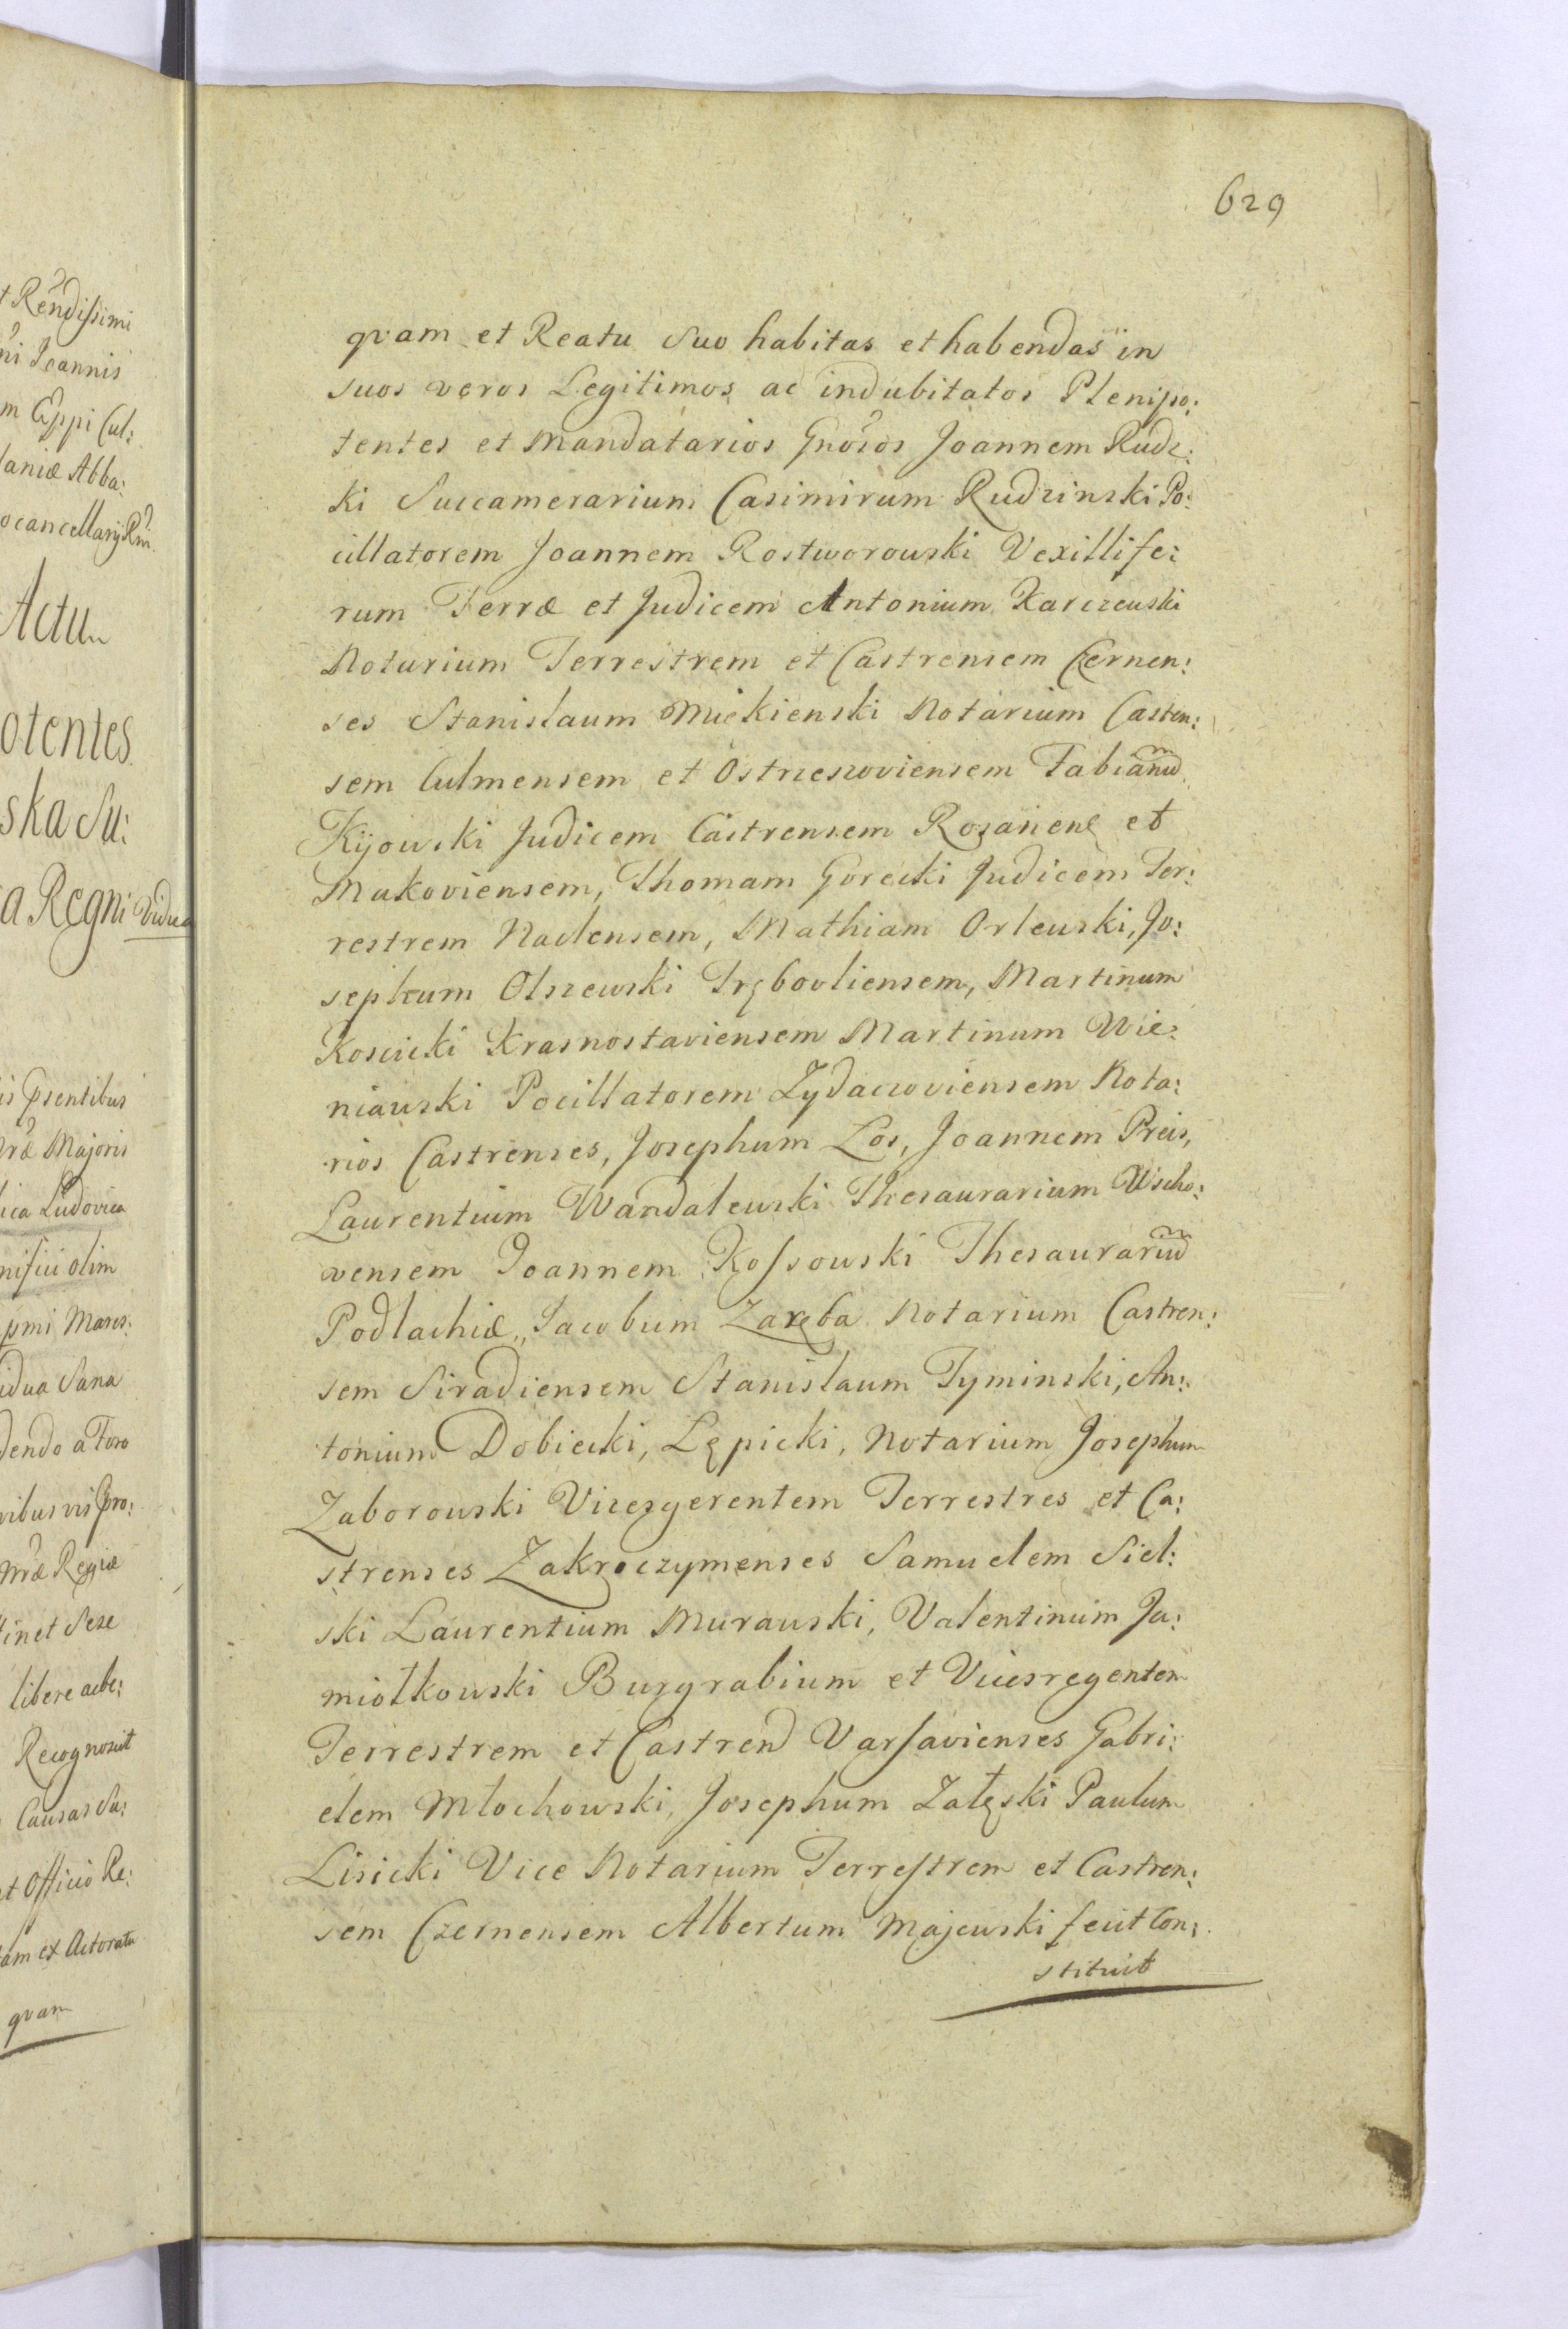 t Rendissimi
ni Joannis
m Eppi Cul:
laniæ Abba:
ocancellarij Rni
Actu
otentes
ska Su:
a Regni Vidua
is Psentibus
Majoris
ica Ludovica
nifici olim
pmi Mares:
idua Sana
dendo a Foro
ribusvis Pro:
Regiæ
tinet Sese
libere acbe:
Recognoscit
Causas Su:
et Officio Re:
tam ex Actoratu
qvam
629
qvam et Reatu Suo habitas et habendas in
suos veros Legitimos ac indubitatos Plenipo:
tentes et Mandatarios Gnosos Joannem Rudz:
ki Succamerarium Casimirum Rudzinski Po:
cillatorem Joannem Rostworowski Vexillife:
rum Terræ et Judicem Antonium Karczewski
Notarium Terrestrem et Castrensem Czernen:
ses Stanislaum Miekienski Notarium Casten:
sem Culmensem et Ostrzeszoviensem Fabianũ
Kijowski Judicem Castrensem Rozanen et
Makoviensem, Thomam Gorecki Judicem Ter:
restrem Naclensem, Mathiam Orlewski, Jo:
sephum Olszewski Trębovliensem, Martinum
Koscicki Krasnostaviensem Martinum Wie:
niawski Pocillatorem Zydaczoviensem Nota:
rios Castrenses, Josephum Los, Joannem Preis,
Laurentium Wandalewski Thesaurarium Wscho:
vensem Joannem Kossowski Thesaurariũ
Podlachiæ, Jacobum Zaręba Notarium Castren:
sem Siradiensem Stanislaum Tyminski, An:
tonium Dobiecki, Lępicki, Notarium Josephum
Zaborowski Vicesgerentem Terrestres et Ca:
strenses Zakroczymenses Samuelem Siel:
ski Laurentium Murawski, Valentinum Ja:
miołkowski Burgrabium et Vicesregentem
Terrestrem et Castren Varsavienses Gabri:
elem Młochowski, Josephum Załęski Paulum
Lisicki Vice Notarium Terrestrem et Castren:
sem Czernensem Albertum Majewski fecit Con:
stituit